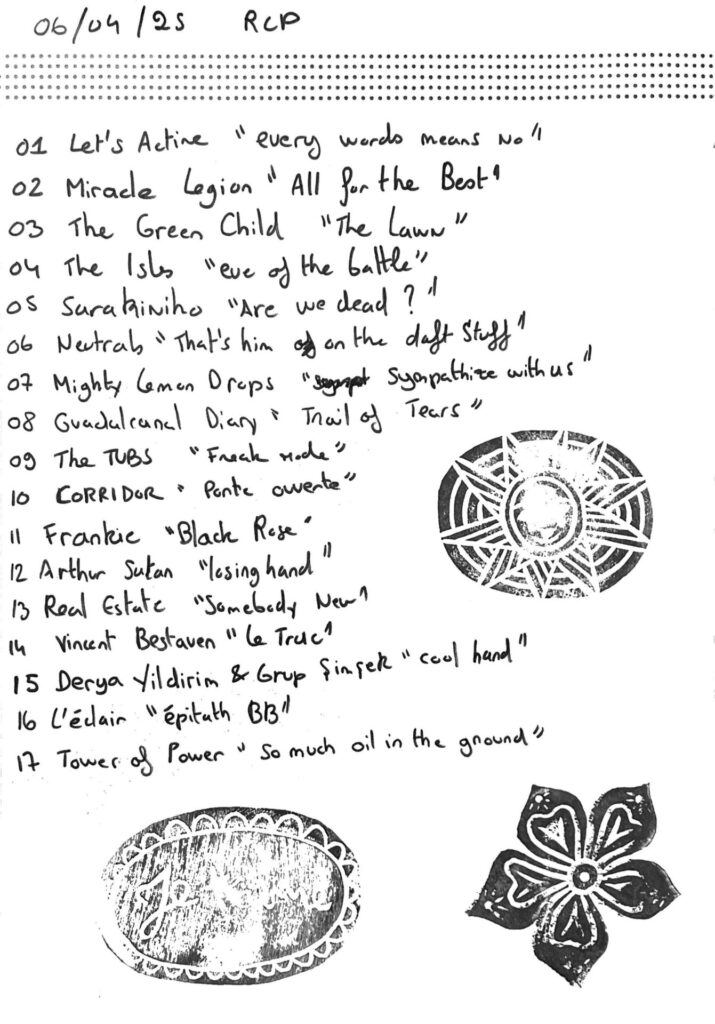 06/04/25 RCP
01 Let's Active "every words means No"
02 Miracle Legion "All for the Best"
03 The Green Child "The Lawn"
04 The Isles "eve of the battle"
05 Sarakiniko "Are we dead ?"
06 Neutrals "That's him on the daft Stuff"
07 Mighty Lemon Drops "Sympathize with us"
08 Guadalcanal Diary "Trail of Tears"
09 The TUBS "Freak mode"
10 CORRIDOR "Porte ouverte"
11 Frankie "Black Rose"
12 Arthur Satan "losing hand"
13 Real Estate "Somebody New"
14 Vincent Bestaven "Le Truc"
15 Derya Yildirim & Grup Şimşek "cool hand"
16 L'éclair "épitath BB"
17 Tower of Power "So much oil in the ground"
Je